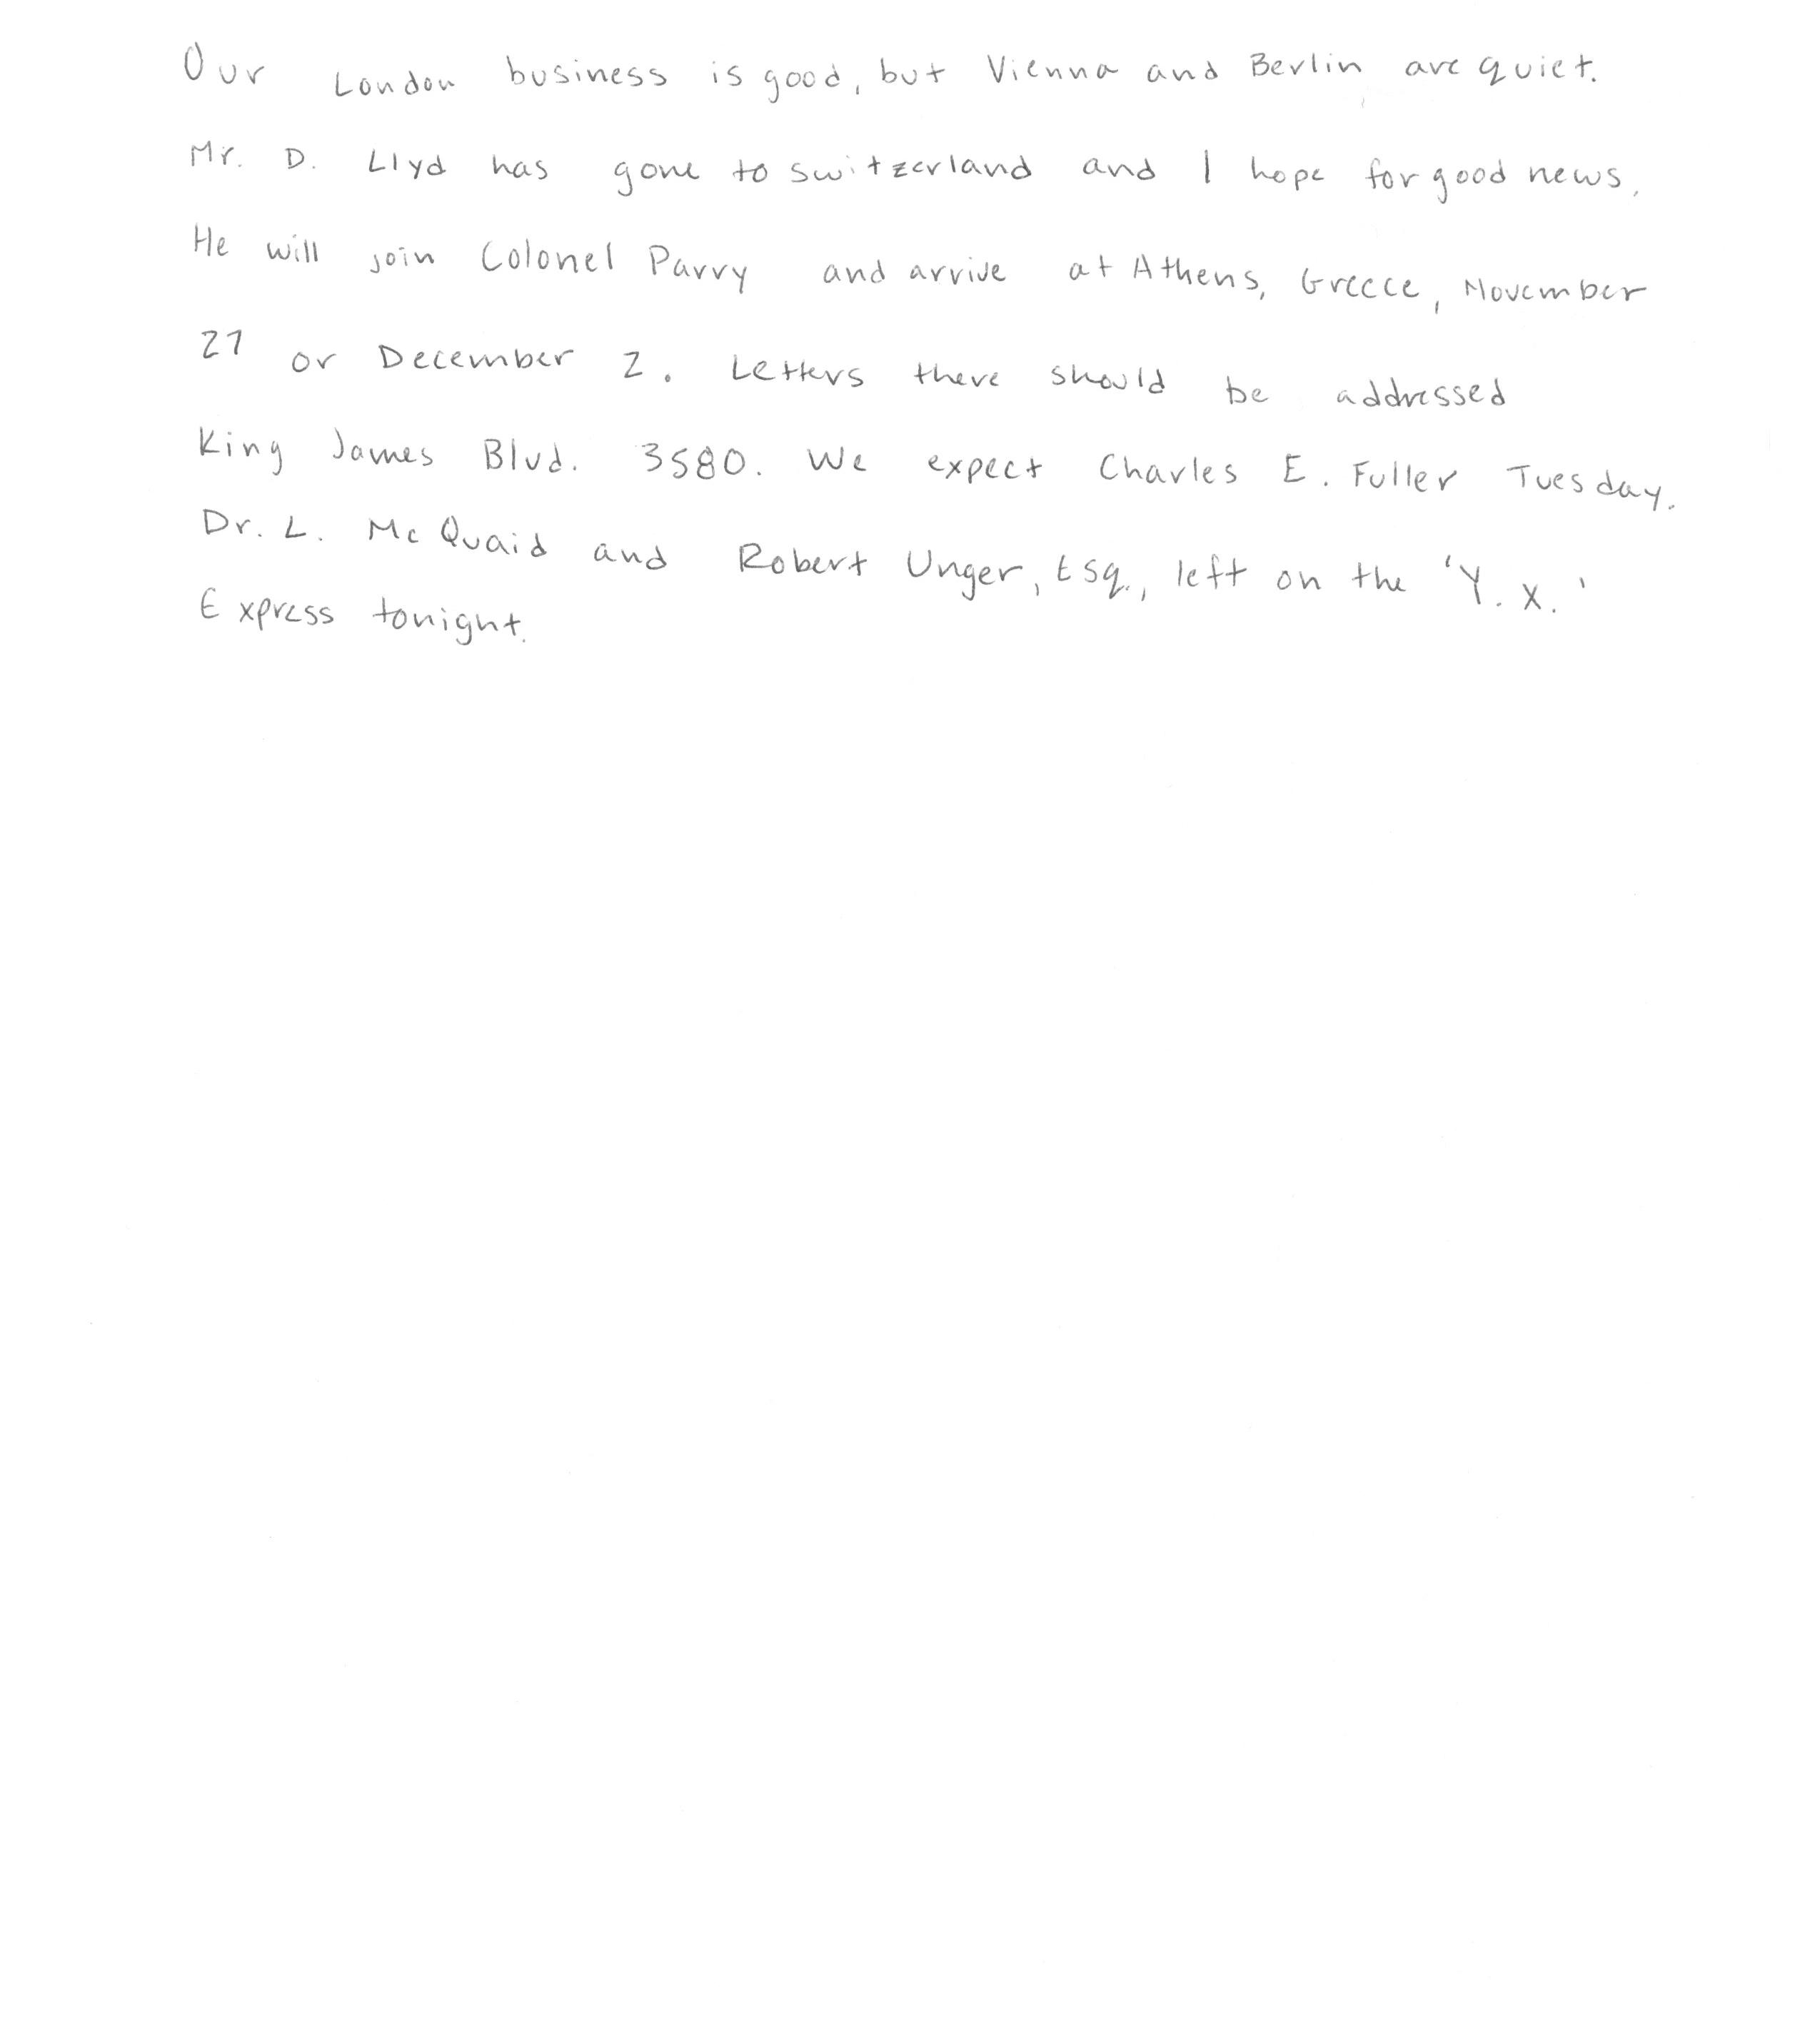 Our London business is good, but Vienna and Berlin are quiet.
Mr. D. Llyd has gone to switzerland and I hope for good news.
He will join Colonel Parry and arrive at Athens, Greece, November
27 or December 2. Letters there should be addressed
King James Blvd. 3580. We expect Charles E. Fuller Tuesday.
Dr. L. McQuaid and Robert Unger, Esq., left on the 'Y. X.'
Express tonight.